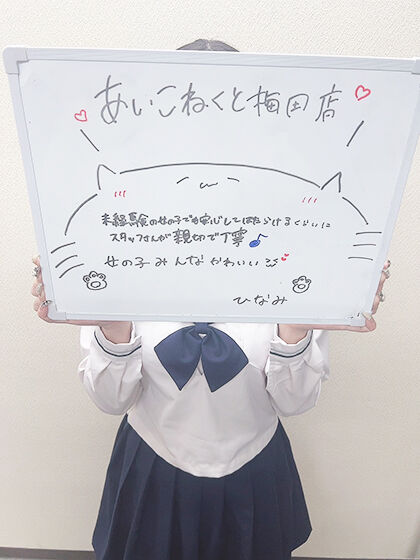 あいこねくと梅田店
未経験の女の子でも安心してはたらけるくらいに
スタッフさんが親切で丁寧
女の子みんなかわいい
ひなみ